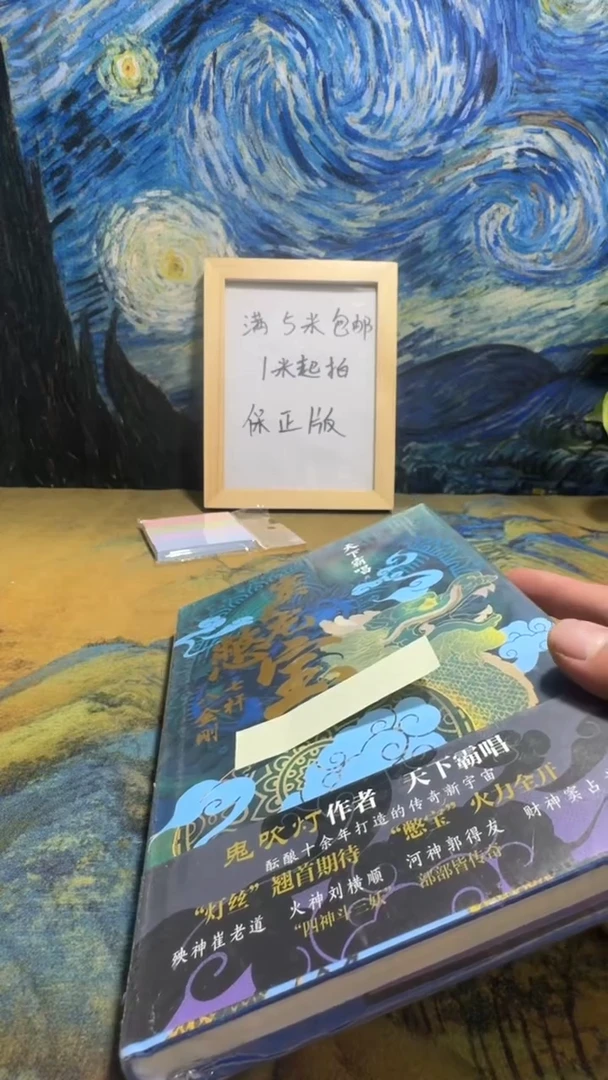 满5米包邮
1米起拍
保正版
天下霸唱
憋宝
七杆
金刚
鬼吹灯作者 天下霸唱
酝酿十余年打造的传奇新宇宙
“灯丝”翘首期待 “憋宝”火力全开
殃神崔老道 火神刘横顺 河神郭得友 财神窦占
“四神斗三妖” 部部皆传奇